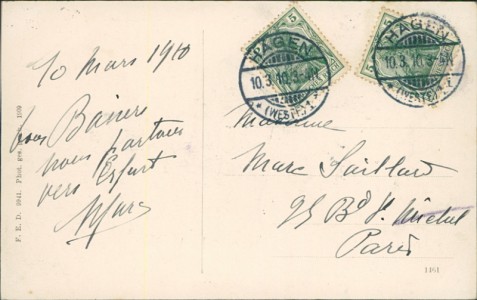 10 Mars 1910
bons Baisers
nous partons
vers Erfurt
HAGEN
10.3.10.3-4N
* (WESTF.) *
5
HAGEN
10.3.10.3-4N
* (WESTF.) *
5
Madame
Marc Saillard
95 Bd St Michel
Paris
F. E. D. Phot.
1461